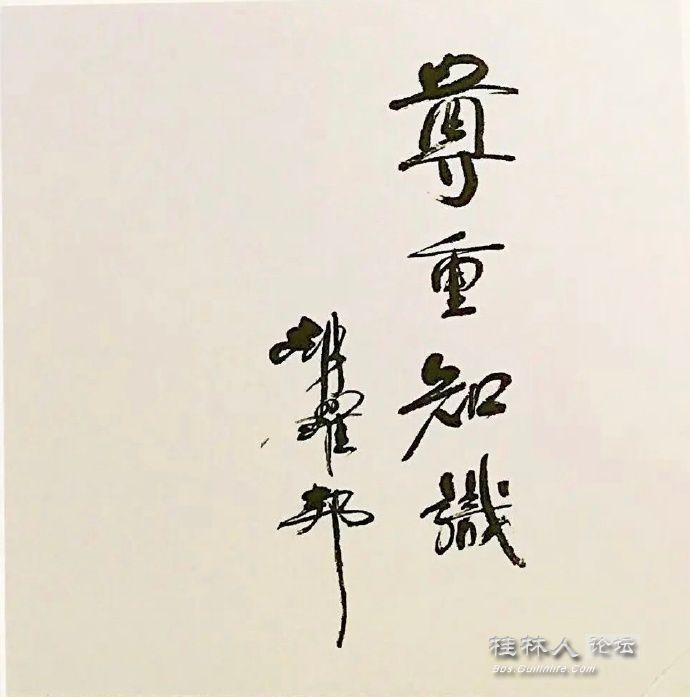 尊重知識
胡耀邦
桂林人 论坛
Bbs.Guilinlife.Com